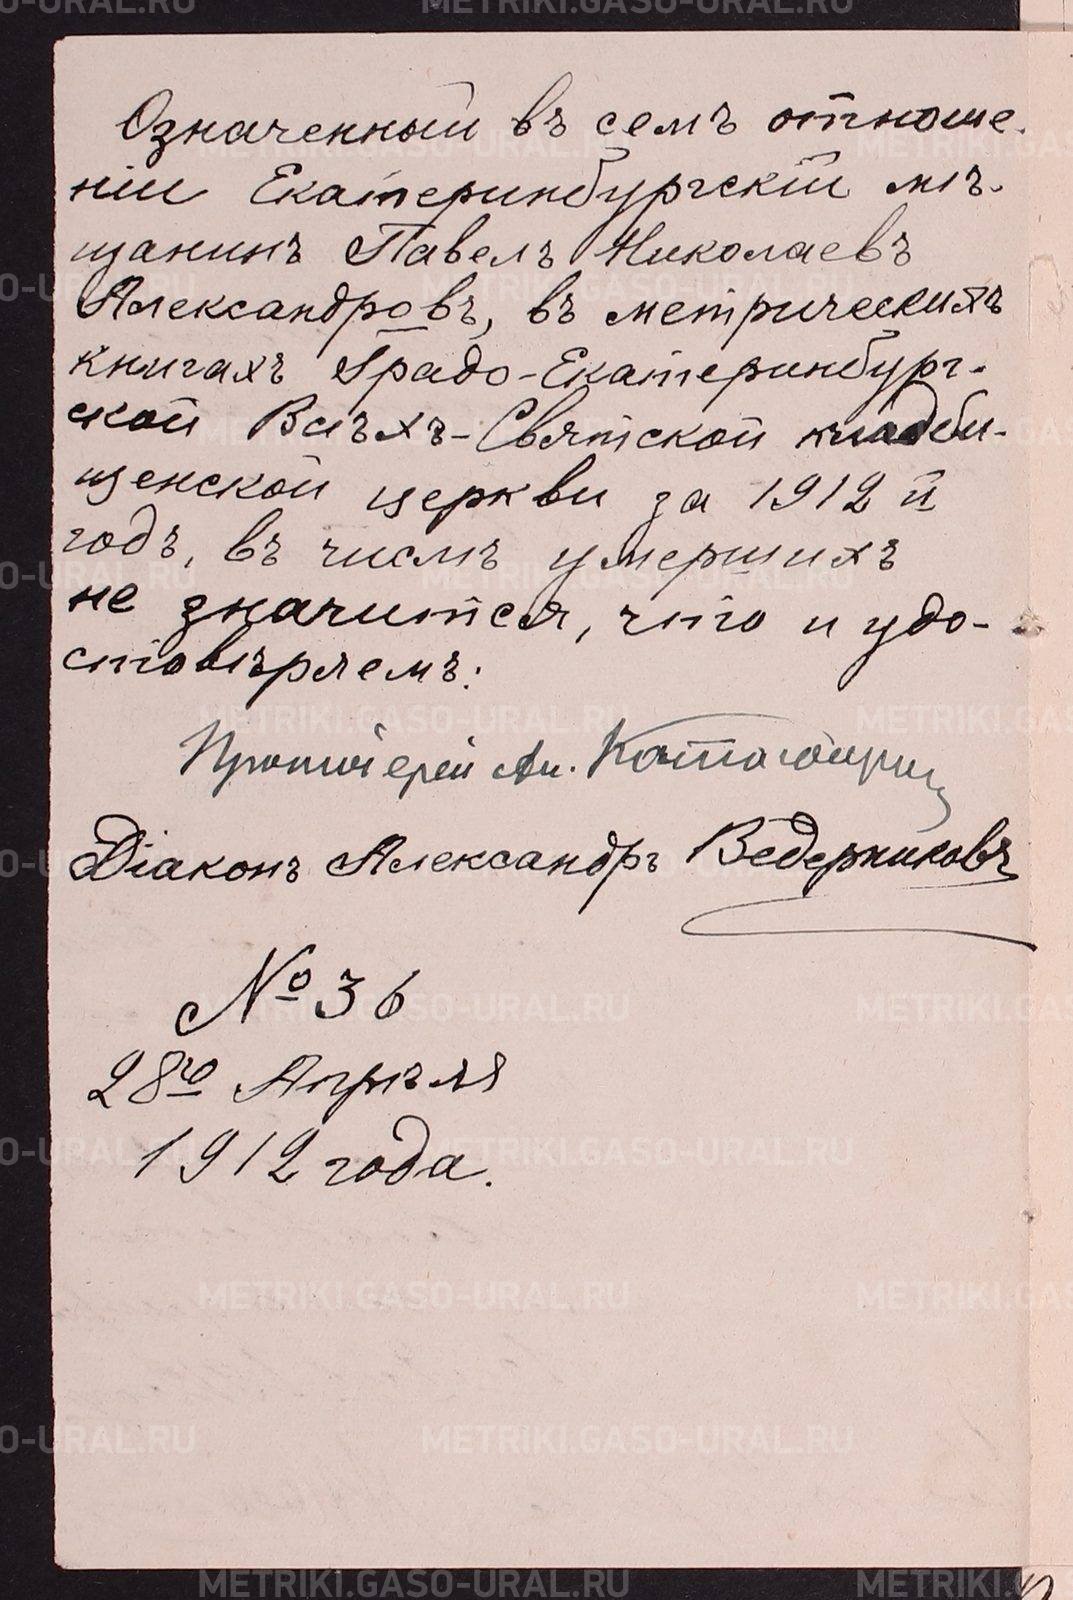 Означенный въ семъ отноше-
ніи Екатеринбургскій мѣ-
щанинъ Павелъ Николаевъ
Александровъ, въ метрическихъ
книгахъ Градо-Екатеринбург-
ской Всѣхъ-Святской кладби-
щенской церкви за 1912 й
годъ, въ числѣ умершихъ
не значится, что и удо-
стовѣряемъ:
Протоіерей Ал.
Діаконъ Александръ Ведерниковъ
№ 36
28го Апрѣля
1912 года.
METRIKI.GASO-URAL.RU